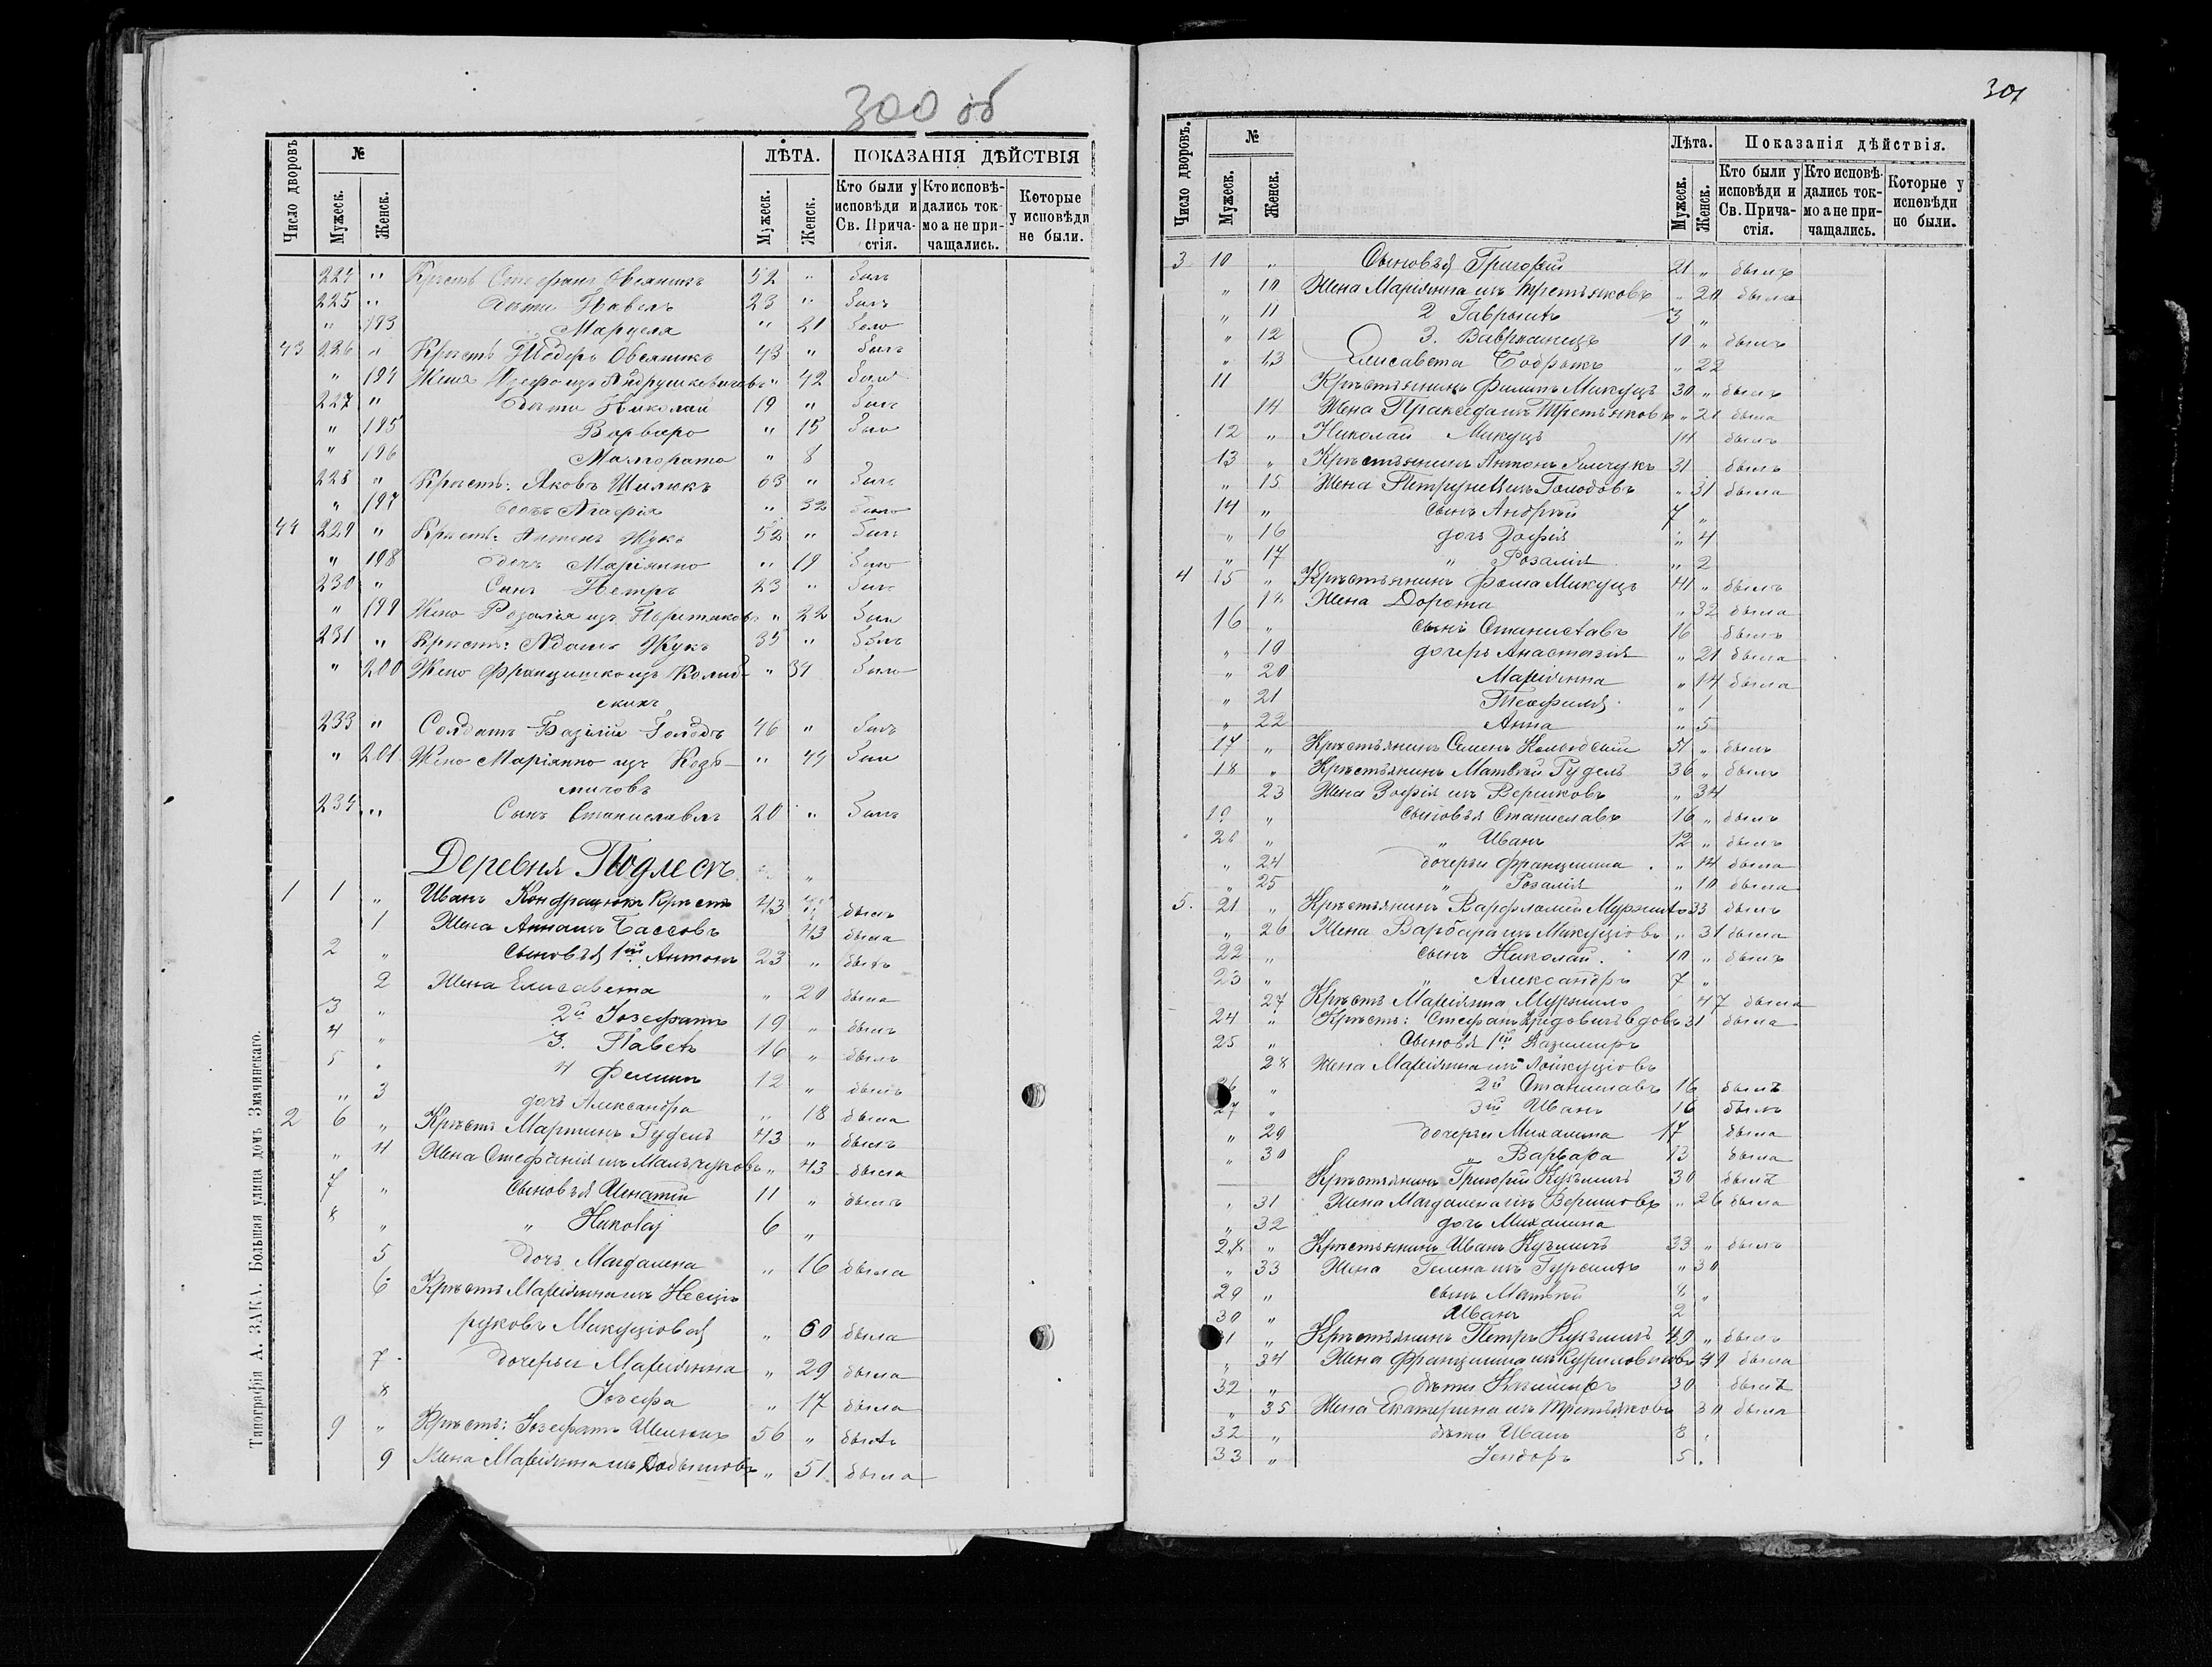 300 об
Число дворовъ
№
Мужеск.
Женск.
ЛѢТА.
Мужеск.
Женск.
ПОКАЗАНІЯ ДѢЙСТВІЯ
Кто были у исповѣди и Св. Прича-стія.
Кто исповѣ-дались ток-мо а не при-чащались.
Которые у исповѣди не были.
224 " Крестъ Стефанъ Овсяникъ 52 " былъ
225 " Дѣти Павелъ 23 " былъ
" 193 Марцеля " 21 была
43 226 " Крестъ Ѳедоръ Овсяникъ 43 " былъ
" 194 Жена Юзефа изъ Андрушкевичовъ " 42 была
227 " Дѣти Николай 19 " былъ
" 195 Варвара " 15 была
" 196 Малгората " 8
228 " Крестъ: Яковъ Шилякъ 63 " былъ
" 197 дочь Агафія " 32 была
44 229 " Крестъ: Антонъ Жукъ 52 " былъ
" 198 дочь Маріянна " 19 была
230 " Сынъ Петръ 23 " былъ
" 199 Жена Розалія изъ " 22 была
231 " Крестъ: Адамъ Жукъ 35 " былъ
" 200 Жена Францишка изъ " 34 была
скихъ
233 " Солдатъ Базилій Голодъ 46 " былъ
" 201 Жена Маріянна изъ Козь- " 44 была
мичовъ
234 " Сынъ Станиславъ 20 " былъ
Деревня Подлескъ
1 1 " Иванъ Кондрацюкъ Крѣстъ 43 " былъ
1 Жена Анна изъ Бассовъ 43 была
2 " Сыновья 1ый Антонъ 23 " былъ
2 Жена Елисавета " 20 была
3 " 2й Іозефатъ 19 " былъ
4 " 3. Павелъ 16 " былъ
5 " 4 Филипъ 12 " былъ
" 3 дочь Александра " 18 была
2 6 " Крѣстъ Мартинъ Гудель 43 " былъ
" 4 Жена Стефанія изъ Мальчуковъ " 43 была
7 " Сыновья Игнатій 11 " былъ
8 " " Николај 6 "
5 дочь Магдалена " 16 была
6 Крѣстъ Маріянна изъ Несце-
руковъ Микуціовая " 60 была
7 дочерьи Маріянна " 29 была
8 Іозефа " 17 была
9 " Крѣстъ: Іозефатъ Шилюкъ 56 " былъ
9 Жена Маріянна изъ " 51 была
Типографія А. ЗАКА. Большая улица домъ Значинскаго.
301
Число дворовъ.
№
Мужеск.
Женск.
Лѣта.
Мужеск.
Женск.
Показанія дѣйствія.
Кто были у исповѣди и Св. Прича-стія.
Кто исповѣ-дались ток-мо а не при-чащались.
Которые у исповѣди не были.
3 10 " Сыновья Григорій 21 " былъ
" 10 Жена Маріянна изъ Третьяковъ " 20 была
" 11 2 Гавріилъ 3 "
" 12 3. 10 " былъ
" 13 Елисавета Бобрыкъ " 22
11 Крѣстьянинъ Филипъ Микуцъ 30 " былъ
14 Жена Праксэда изъ Третьяковъ " 21 была
12 " Николай Микуцъ 14 былъ
13 " Крѣстьянинъ Антонъ 31 былъ
" 15 Жена Петрунеля изъ Голодовъ " 31 была
14 " сынъ Андрѣй 7 "
" 16 дочь Зофія " 4
" 17 " Розалія " 2
4 15 " Крѣстьянинъ Фома Микуцъ 41 " былъ
18 Жена Дорота " 32 была
16 " сынъ Станиславъ 16 былъ
" 19 дочерь Анастазія " 21 была
" 20 Маріянна " 14 была
" 21 Теофиля " 1
" 22 Анна " 5
17 " Крѣстьянинъ Семенъ 51 " былъ
18 " Крѣстьянинъ Матвѣй Гудель 36 " былъ
23 Жена Зофія изъ Вершковъ " 34
19 " Сыновья Станиславъ 16 " былъ
20 " " Иванъ 12 " былъ
" 24 дочерьи Францишка " 14 была
" 25 " Розалія " 10 была
5. 21 " Крѣстьянинъ Варфломей Муржило 33 былъ
" 26 Жена Варбара изъ Микуціовъ " 31 была
22 " сынъ Николай 10 " былъ
23 " " Александръ 7 "
27 Крѣстъ Маріянна Муржило 47 была
24 " Крѣстъ: Стефанъ вдовъ 31 была
25 " Сыновья 1ый Казимиръ
28 Жена Маріянна изъ
26 " 2й Станиславъ 16 былъ
27 " 3ій Иванъ 16 былъ
" 29 дочерьи Михалина 17 была
" 30 " Варвара 13 была
Крѣстьянинъ Григорій Кузьмичъ 30 былъ
" 31 Жена Магдалена изъ Вершковъ " 26 была
" 32 дочь Михалина
28 " Крѣстьянинъ Иванъ Кузьмичъ 33 " былъ
" 33 Жена Гелена изъ " 30
29 " сынъ Матвѣй 8 "
30 " Иванъ 2
31 " Крѣстьянинъ Петръ Кузьмичъ 49 " былъ
" 34 Жена Францишка изъ Куриловичовъ 49 была
32 " дѣти Казимиръ 30 былъ
" 35 Жена Екатерина изъ Третьяковъ 30 была
32 " дѣти Иванъ 8 "
33 " 5 "